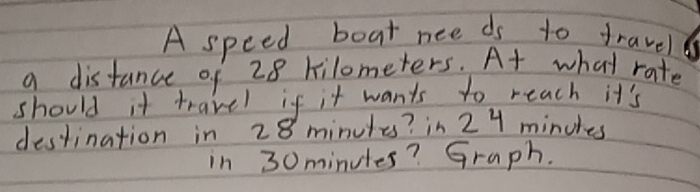 A speed boat needs to travel
a distance of 28 kilometers. At what rate
should it travel if it wants to reach it's
destination in 28 minutes? in 24 minutes
in 30 minutes? Graph.